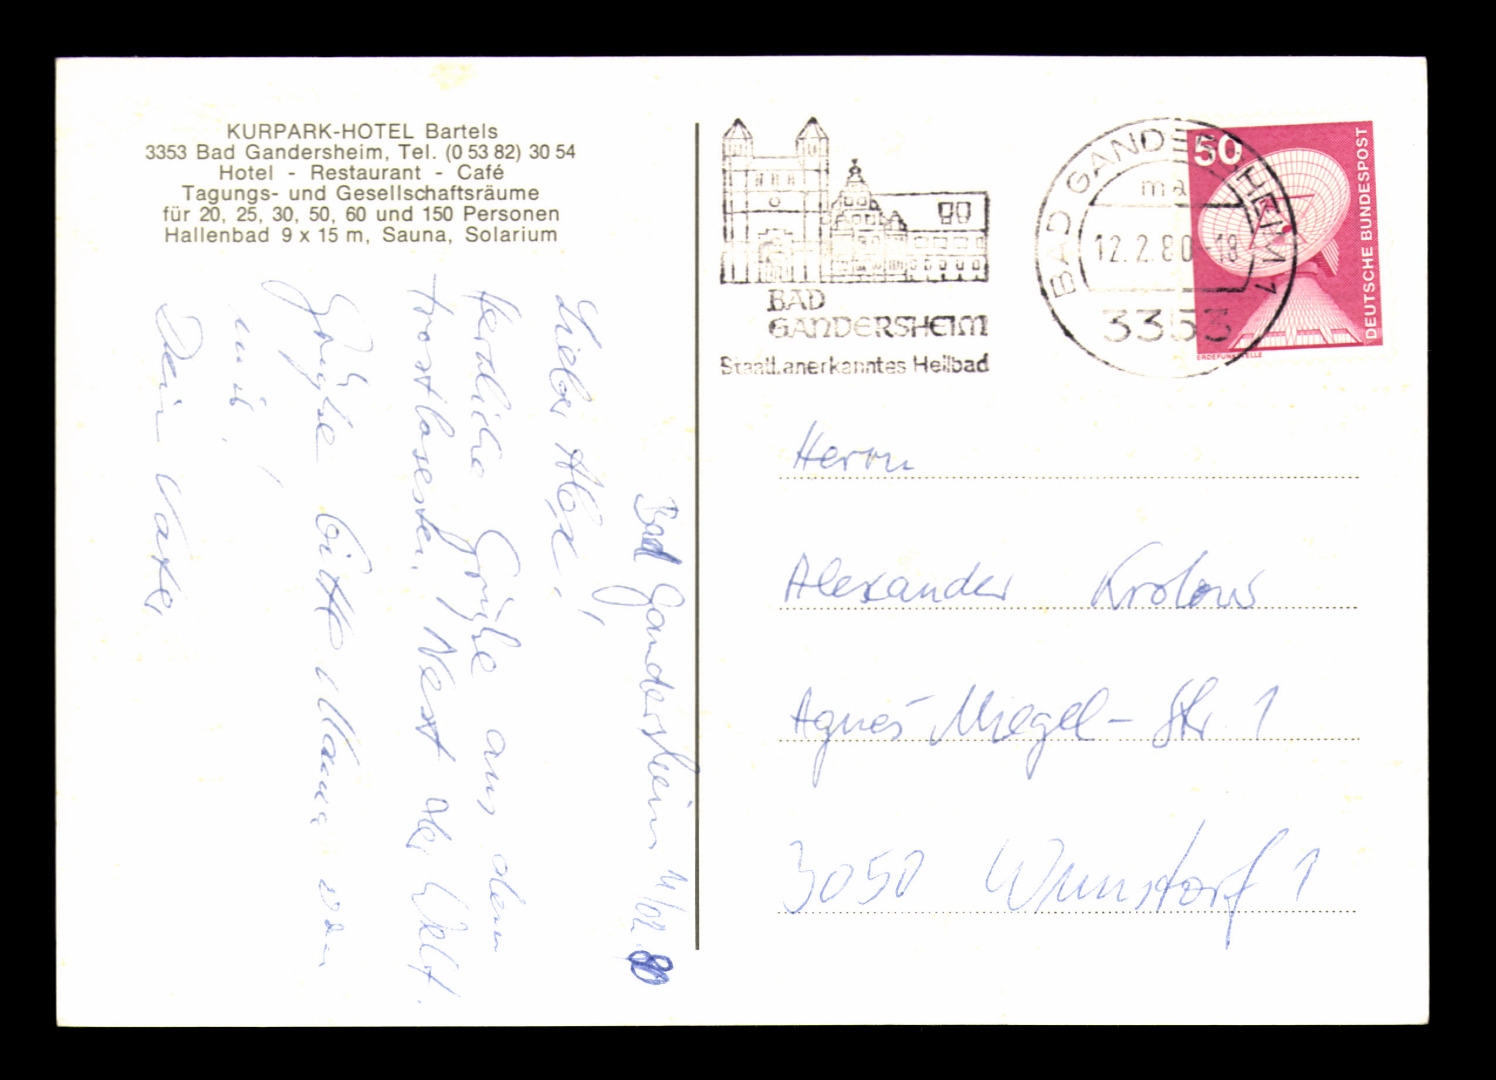 KURPARK-HOTEL Bartels
3353 Bad Gandersheim, Tel. (0 53 82) 30 54
Hotel - Restaurant - Café
Tagungs- und Gesellschaftsräume
für 20, 25, 30, 50, 60 und 150 Personen
Hallenbad 9 x 15 m, Sauna, Solarium
Bad Gandersheim 11/02 80
Lieber Alex!,
herzliche Grüße aus dem
trostlosesten Nest der Welt.
Grüße bitte Mama von
mir,
Dein Vater
BAD
GANDERSHEIM
Staatl.anerkanntes Heilbad
BAD GANDERSHEIM 1
ma
12.2.80-18
3353
50
DEUTSCHE BUNDESPOST
ERDEFUNKSTELLE
Herrn
Alexander Krolow
Agnes-Miegel-Str 1
3050 Wunstorf 1